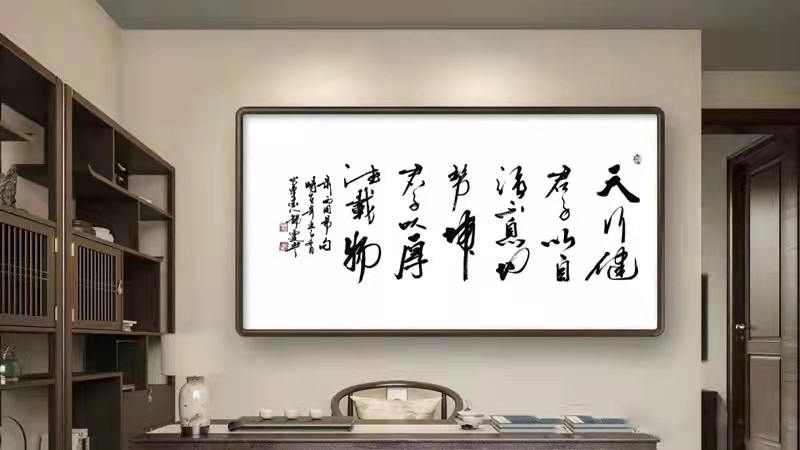 天行健
君子以自
强不息地
势坤
君子以厚
德载物
周易句